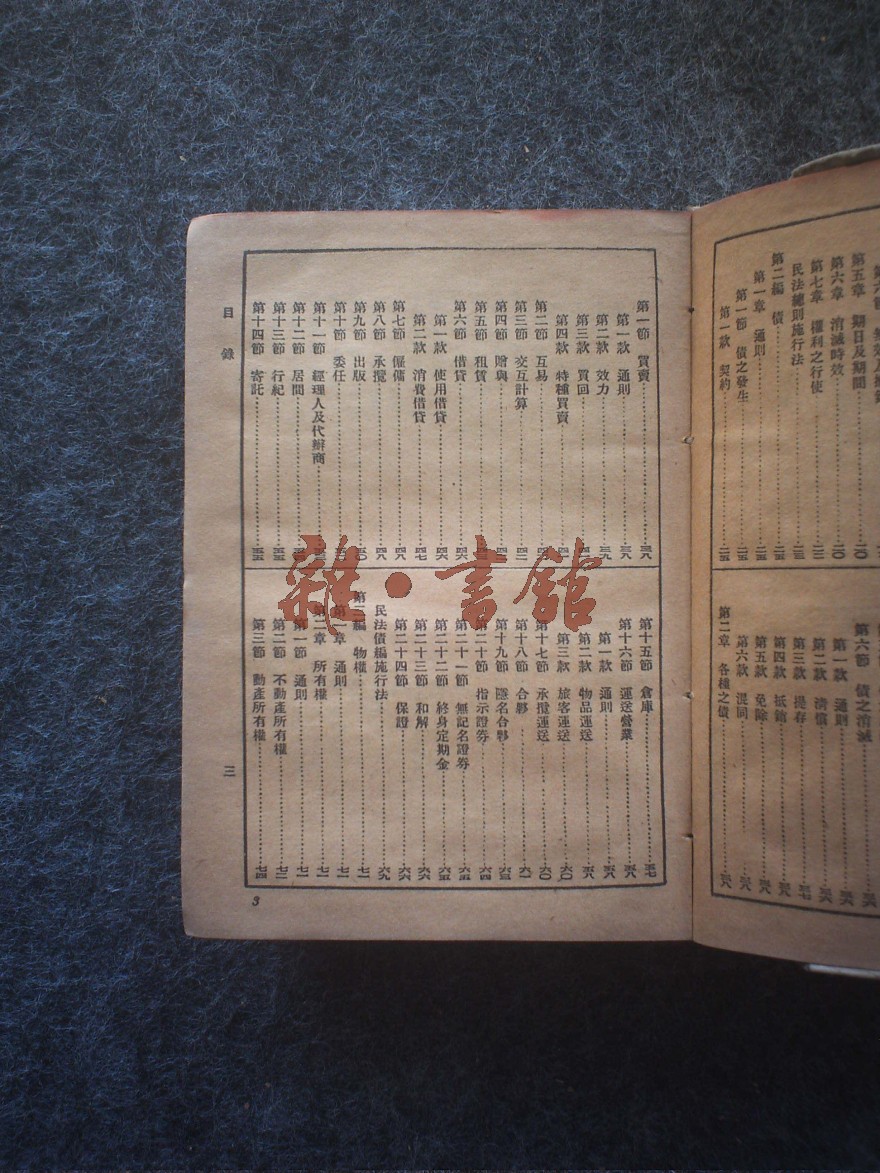 第五章 期日及期間……二〇
第六章 消滅時效……二〇
第七章 權利之行使……二二
民法總則施行法……二三
第二編 債……二五
第一章 通則……二五
第一節 債之發生……二五
第一款 契約……二五
第六節 債之消滅……三六
第一款 通則……三六
第二款 清償……三六
第三款 提存……三七
第四款 抵銷……三八
第五款 免除……三八
第六款 混同……三八
第二章 各種之債……三八
第一節 買賣……三八
第一款 通則……三八
第二款 效力……三九
第三款 買回……
第四款 特種買賣……
第二節 互易……
第三節 交互計算……四二
第四節 贈與……
第五節 租賃……
第六節 借貸……四六
第一款 使用借貸……四六
第二款 消費借貸……四七
第七節 僱傭……四八
第八節 承攬……四八
第九節 出版……五〇
第十節 委任……
第十一節 經理人及代辦商……
第十二節 居間……
第十三節 行紀……五五
第十四節 寄託……五五
第十五節 倉庫……五七
第十六節 運送營業……五八
第一款 通則……五八
第二款 物品運送……五八
第三款 旅客運送……六〇
第十七節 承攬運送……六〇
第十八節 合夥……六一
第十九節 隱名合夥……六三
第二十節 指示證券……六四
第二十一節 無記名證券……六五
第二十二節 終身定期金……六六
第二十三節 和解……六六
第二十四節 保證……六六
民法債編施行法……六九
第三編 物權……七一
第一章 通則……七一
第二章 所有權……七一
第一節 通則……七一
第二節 不動產所有權……七二
第三節 動產所有權……七四
目錄
三
3
雜·書館